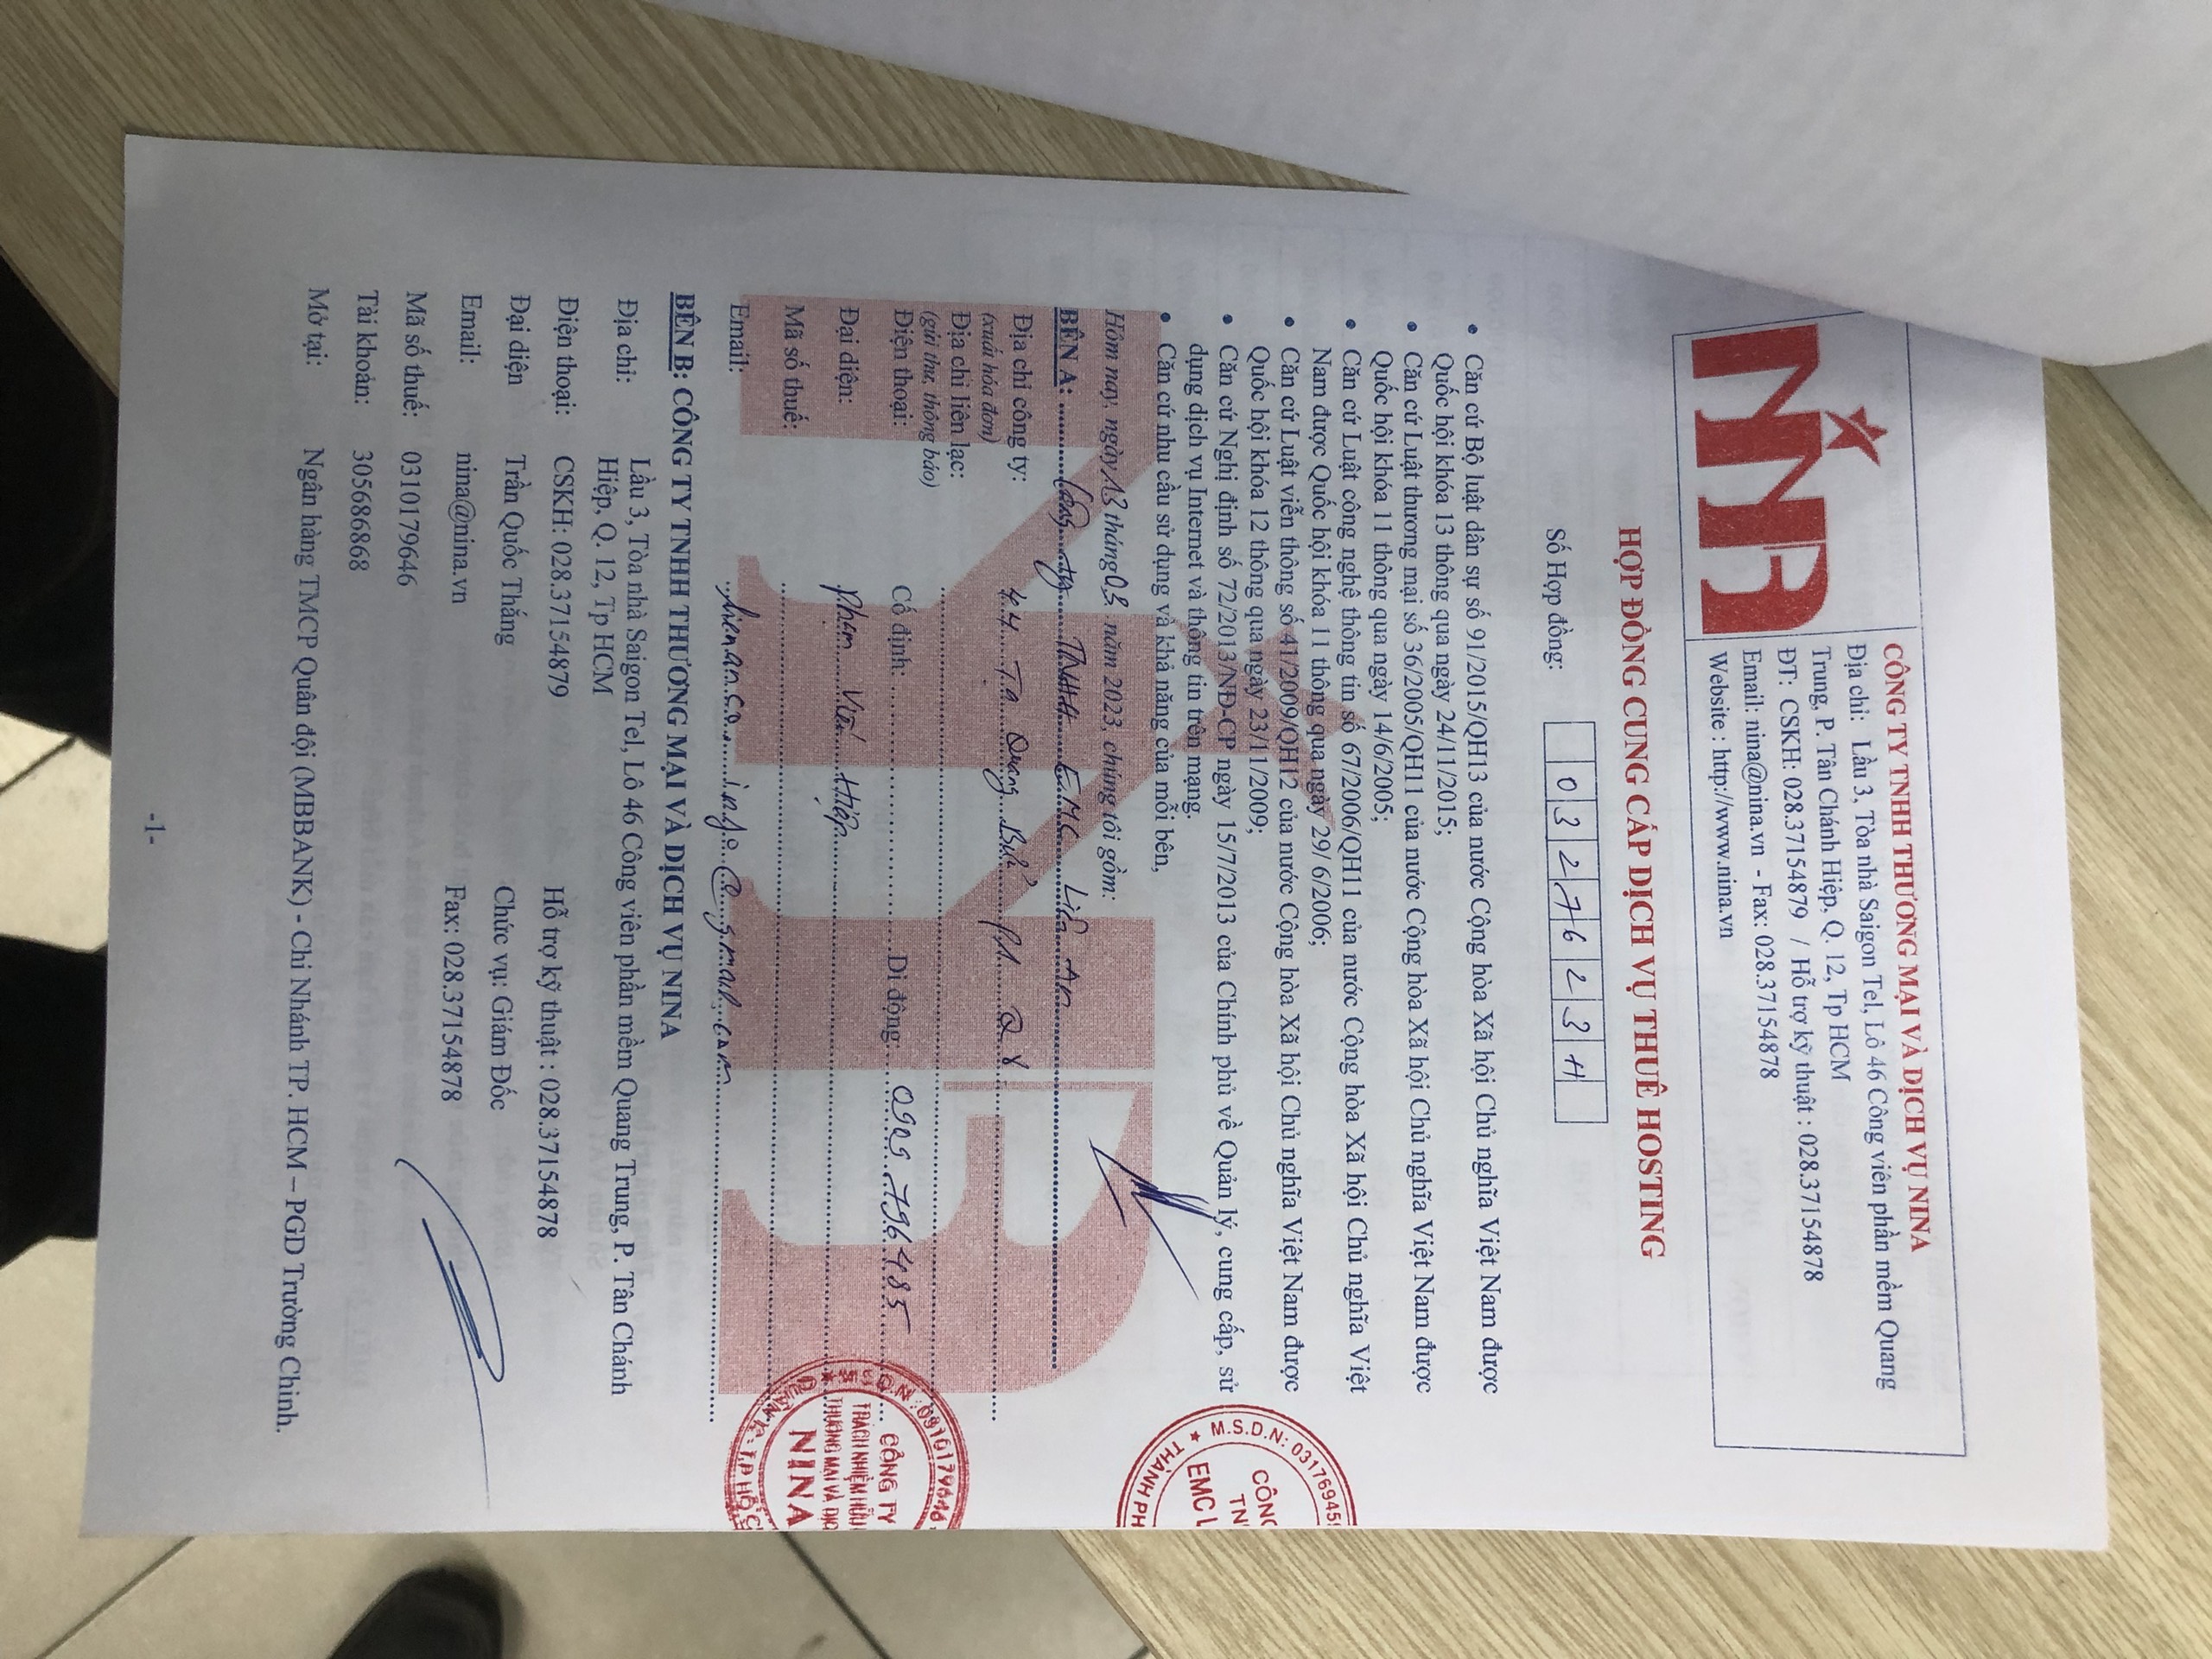 NINA
CÔNG TY TNHH THƯƠNG MẠI VÀ DỊCH VỤ NINA
Địa chỉ: Lầu 3, Tòa nhà Saigon Tel, Lô 46 Công viên phần mềm Quang
Trung, P. Tân Chánh Hiệp, Q. 12, Tp HCM
ĐT: CSKH: 028.37154879 / Hỗ trợ kỹ thuật : 028.37154878
Email: nina@nina.vn - Fax: 028.37154878
Website : http://www.nina.vn
HỢP ĐỒNG CUNG CẤP DỊCH VỤ THUÊ HOSTING
Số Hợp đồng: 0 3 2 7 6 2 3 H
• Căn cứ Bộ luật dân sự số 91/2015/QH13 của nước Cộng hòa Xã hội Chủ nghĩa Việt Nam được
Quốc hội khóa 13 thông qua ngày 24/11/2015;
• Căn cứ Luật thương mại số 36/2005/QH11 của nước Cộng hòa Xã hội Chủ nghĩa Việt Nam được
Quốc hội khóa 11 thông qua ngày 14/6/2005;
• Căn cứ Luật công nghệ thông tin số 67/2006/QH11 của nước Cộng hòa Xã hội Chủ nghĩa Việt
Nam được Quốc hội khóa 11 thông qua ngày 29/ 6/2006;
• Căn cứ Luật viễn thông số 41/2009/QH12 của nước Cộng hòa Xã hội Chủ nghĩa Việt Nam được
Quốc hội khóa 12 thông qua ngày 23/11/2009;
• Căn cứ Nghị định số 72/2013/NĐ-CP ngày 15/7/2013 của Chính phủ về Quản lý, cung cấp, sử
dụng dịch vụ Internet và thông tin trên mạng.
• Căn cứ nhu cầu sử dụng và khả năng của mỗi bên,
Hôm nay, ngày 13 tháng 03 năm 2023, chúng tôi gồm:
BÊN A: Công ty TNHH EMC Life An
Địa chỉ công ty: 44 Tạ Quang Bửu P1 Q8
(xuất hóa đơn)
Địa chỉ liên lạc:
(gửi thư, thông báo)
Điện thoại: Cố định: Di động: 0909 796 485
Đại diện: Phạm Viết Hiệp
Mã số thuế:
Email: @gmail.com
BÊN B: CÔNG TY TNHH THƯƠNG MẠI VÀ DỊCH VỤ NINA
Địa chỉ: Lầu 3, Tòa nhà Saigon Tel, Lô 46 Công viên phần mềm Quang Trung, P. Tân Chánh
Hiệp, Q. 12, Tp HCM
Điện thoại: CSKH: 028.37154879 Hỗ trợ kỹ thuật : 028.37154878
Đại diện Trần Quốc Thắng Chức vụ: Giám Đốc
Email: nina@nina.vn Fax: 028.37154878
Mã số thuế: 0310179646
Tài khoản: 3056868868
Mở tại: Ngân hàng TMCP Quân đội (MBBANK) - Chi Nhánh TP. HCM – PGD Trường Chinh.
M.S.D.N: 031769455
CÔNG
TN
EMC L
THÀNH PH
0310179646
CÔNG TY
TRÁCH NHIỆM HỮU
THƯƠNG MẠI VÀ DỊC
NINA
-1-